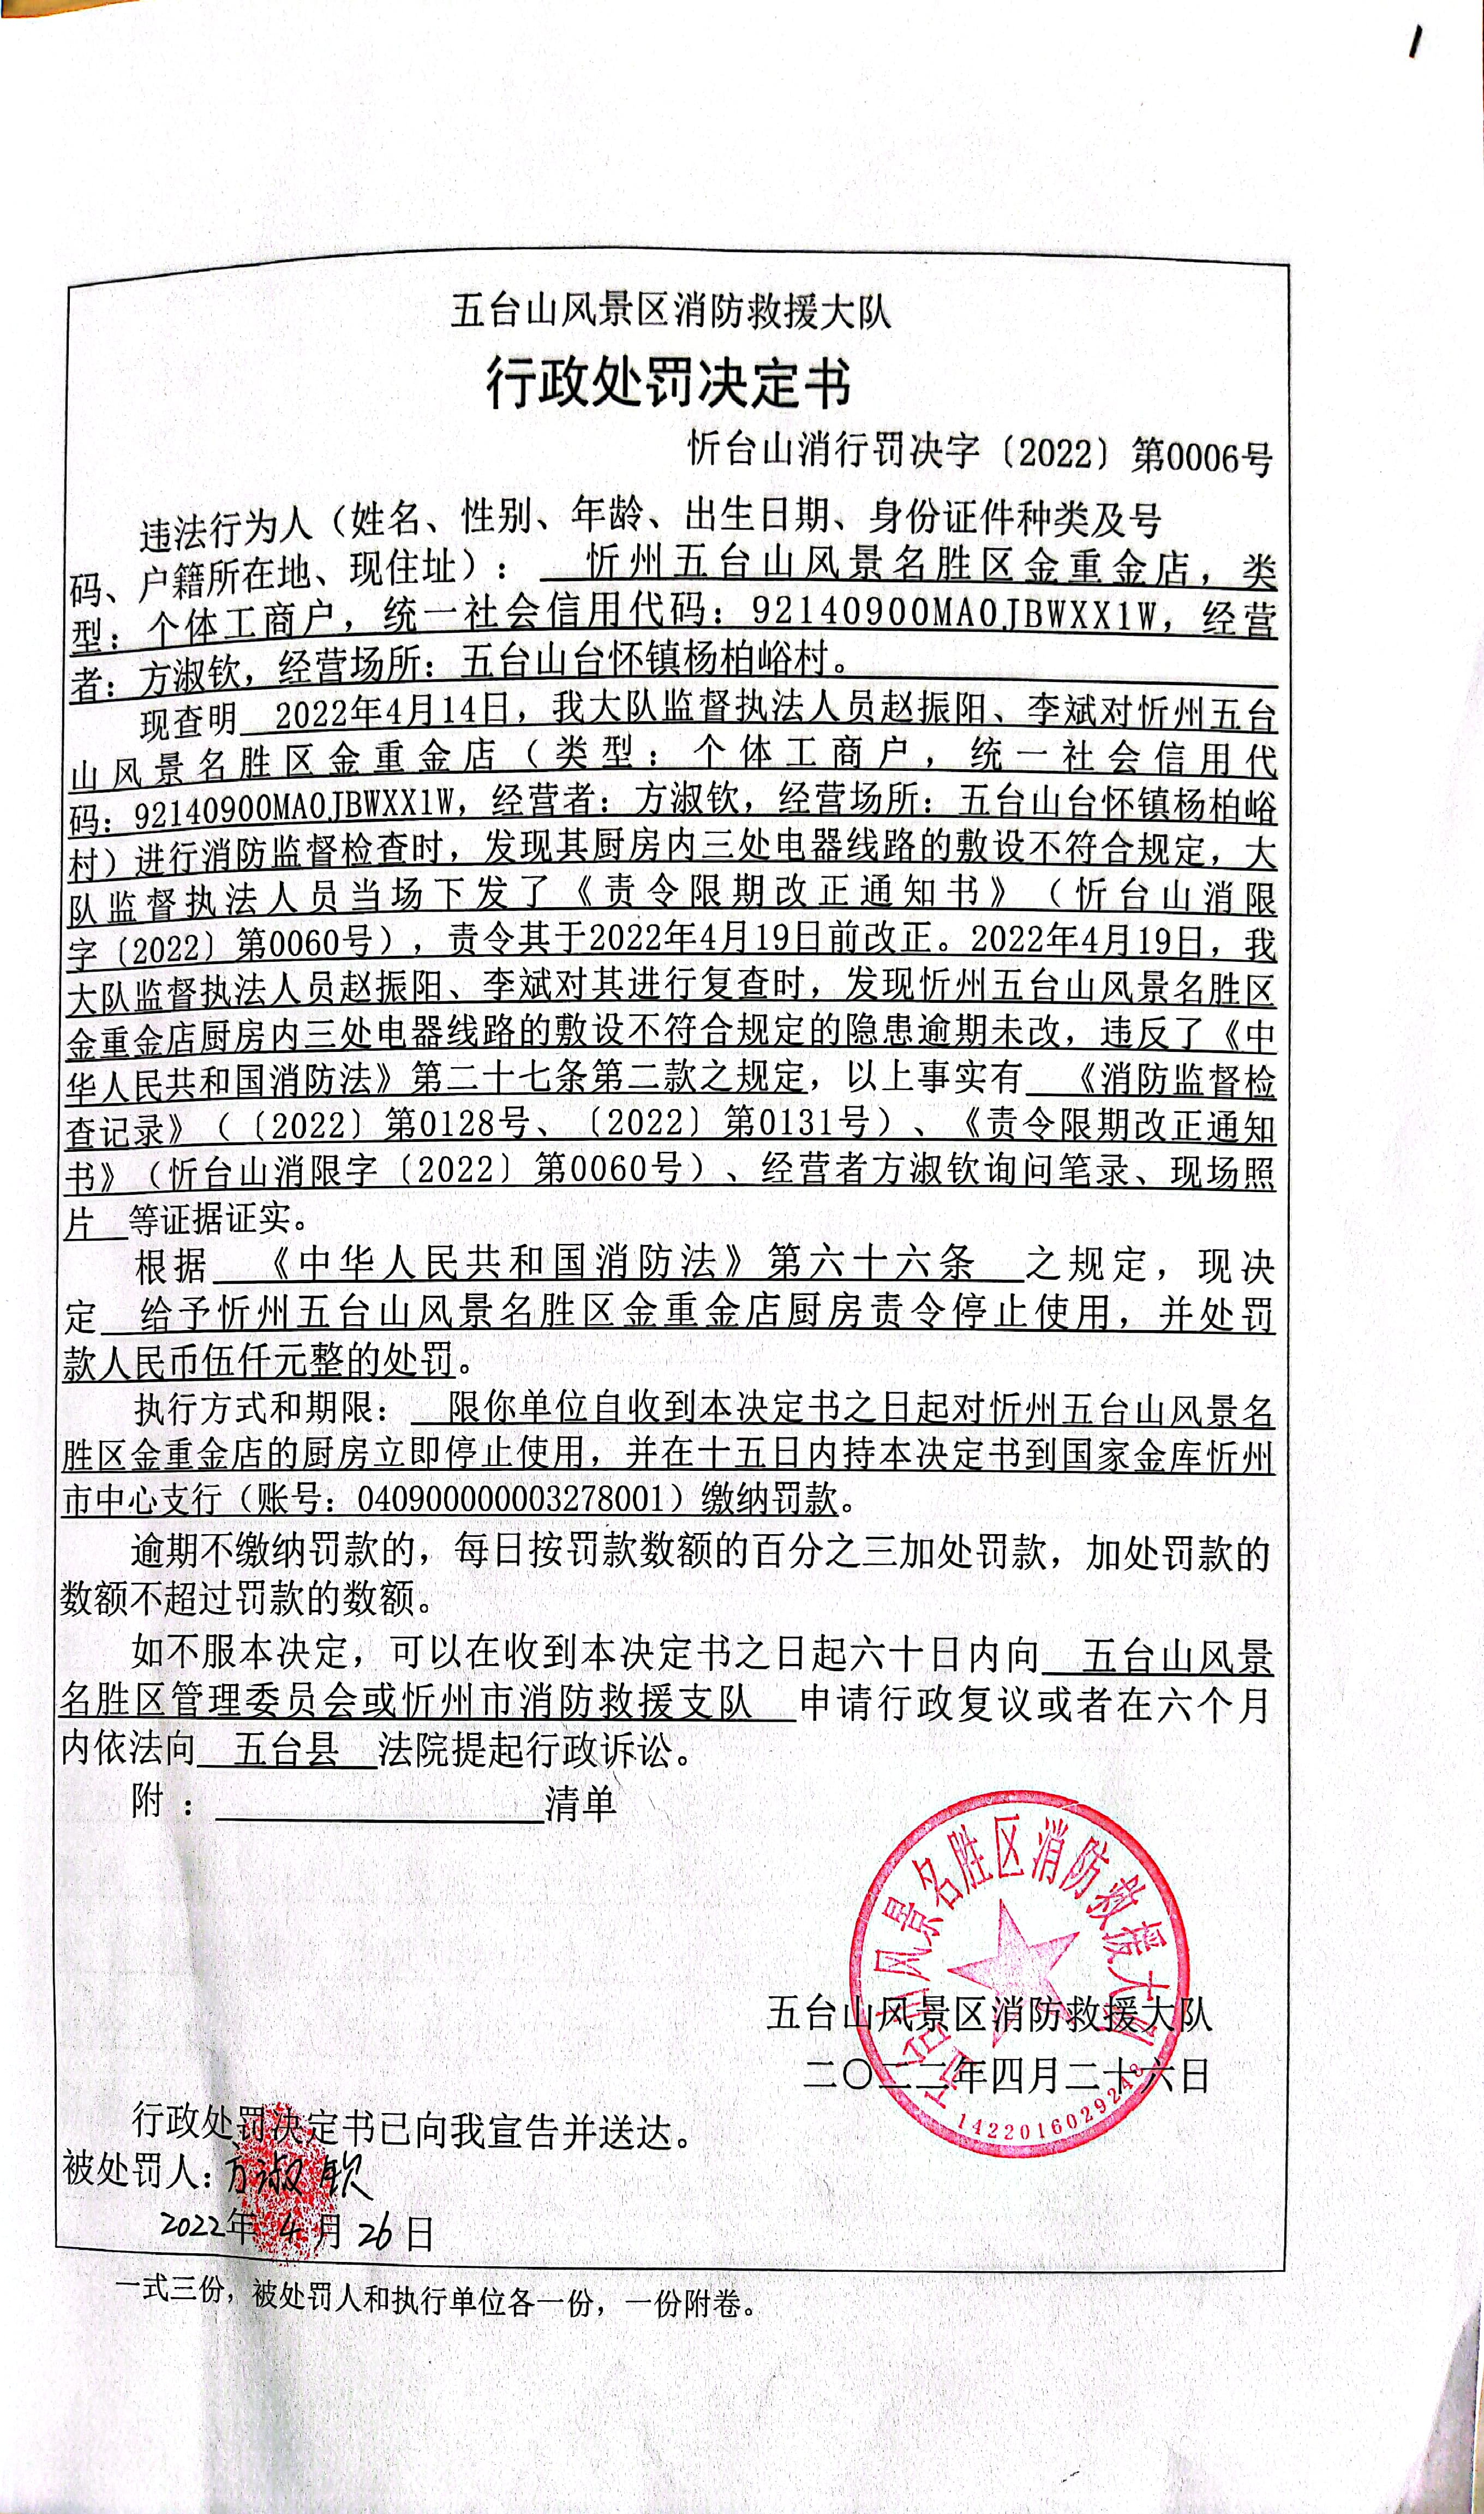 1
五台山风景区消防救援大队
行政处罚决定书
忻台山消行罚决字〔2022〕第0006号
违法行为人（姓名、性别、年龄、出生日期、身份证件种类及号
码、户籍所在地、现住址）： 忻州五台山风景名胜区金重金店，类
型：个体工商户，统一社会信用代码：92140900MA0JBWXX1W，经营
者：方淑钦，经营场所：五台山台怀镇杨柏峪村。
现查明 2022年4月14日，我大队监督执法人员赵振阳、李斌对忻州五台
山风景名胜区金重金店（类型：个体工商户，统一社会信用代
码：92140900MA0JBWXX1W，经营者：方淑钦，经营场所：五台山台怀镇杨柏峪
村）进行消防监督检查时，发现其厨房内三处电器线路的敷设不符合规定，大
队监督执法人员当场下发了《责令限期改正通知书》（忻台山消限
字〔2022〕第0060号），责令其于2022年4月19日前改正。2022年4月19日，我
大队监督执法人员赵振阳、李斌对其进行复查时，发现忻州五台山风景名胜区
金重金店厨房内三处电器线路的敷设不符合规定的隐患逾期未改，违反了《中
华人民共和国消防法》第二十七条第二款之规定，以上事实有 《消防监督检
查记录》（〔2022〕第0128号、〔2022〕第0131号）、《责令限期改正通知
书》（忻台山消限字〔2022〕第0060号）、经营者方淑钦询问笔录、现场照
片 等证据证实。
根据 《中华人民共和国消防法》第六十六条 之规定，现决
定 给予忻州五台山风景名胜区金重金店厨房责令停止使用，并处罚
款人民币伍仟元整的处罚。
执行方式和期限： 限你单位自收到本决定书之日起对忻州五台山风景名
胜区金重金店的厨房立即停止使用，并在十五日内持本决定书到国家金库忻州
市中心支行（账号：040900000003278001）缴纳罚款。
逾期不缴纳罚款的，每日按罚款数额的百分之三加处罚款，加处罚款的
数额不超过罚款的数额。
如不服本决定，可以在收到本决定书之日起六十日内向 五台山风景
名胜区管理委员会或忻州市消防救援支队 申请行政复议或者在六个月
内依法向 五台县 法院提起行政诉讼。
附：清单
五台山风景名胜区消防救援大队
五台山风景区消防救援大队
二〇二二年四月二十六日
1422016029248
行政处罚决定书已向我宣告并送达。
被处罚人：方淑钦
2022年4月26日
一式三份，被处罚人和执行单位各一份，一份附卷。